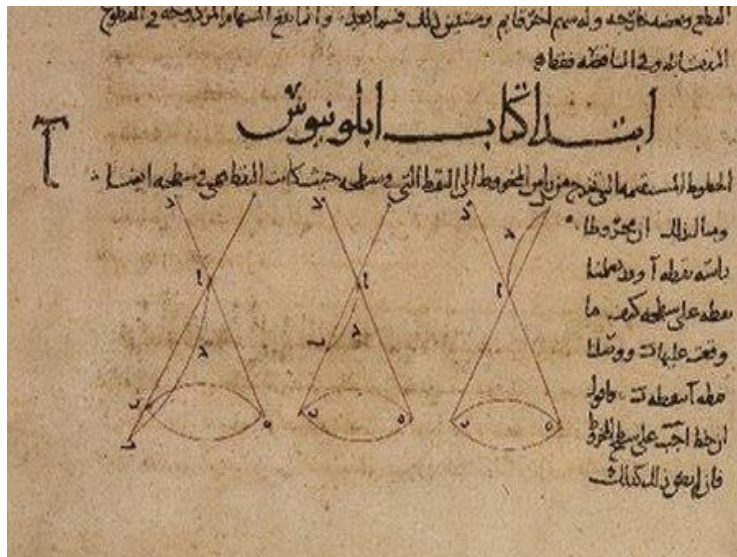 القطع وبعضه خارجه وله سهم اخر قايم وسنبين ذلك فيما بعد وانما يقع السهام المزدوجة في القطوع
المتقابلة وفي الناقصة فقط
ابتدا كتاب ابلونيوس
آ
الخطوط المستقيمة التي تخرج من راس المخروط الى النقط التي في سطحه حيث كانت النقط فهي في سطحه ايضا
مثال ذلك ان مخروطا
راسه نقطة آ وقد تعلمنا
نقطه على سطحه كيف ما
وقعت عليها ب ووصلنا
نقطة آ بنقطة ب فاقول
ان خط اجب على سطح المخروط
فان لم يكن ذلك كذلك